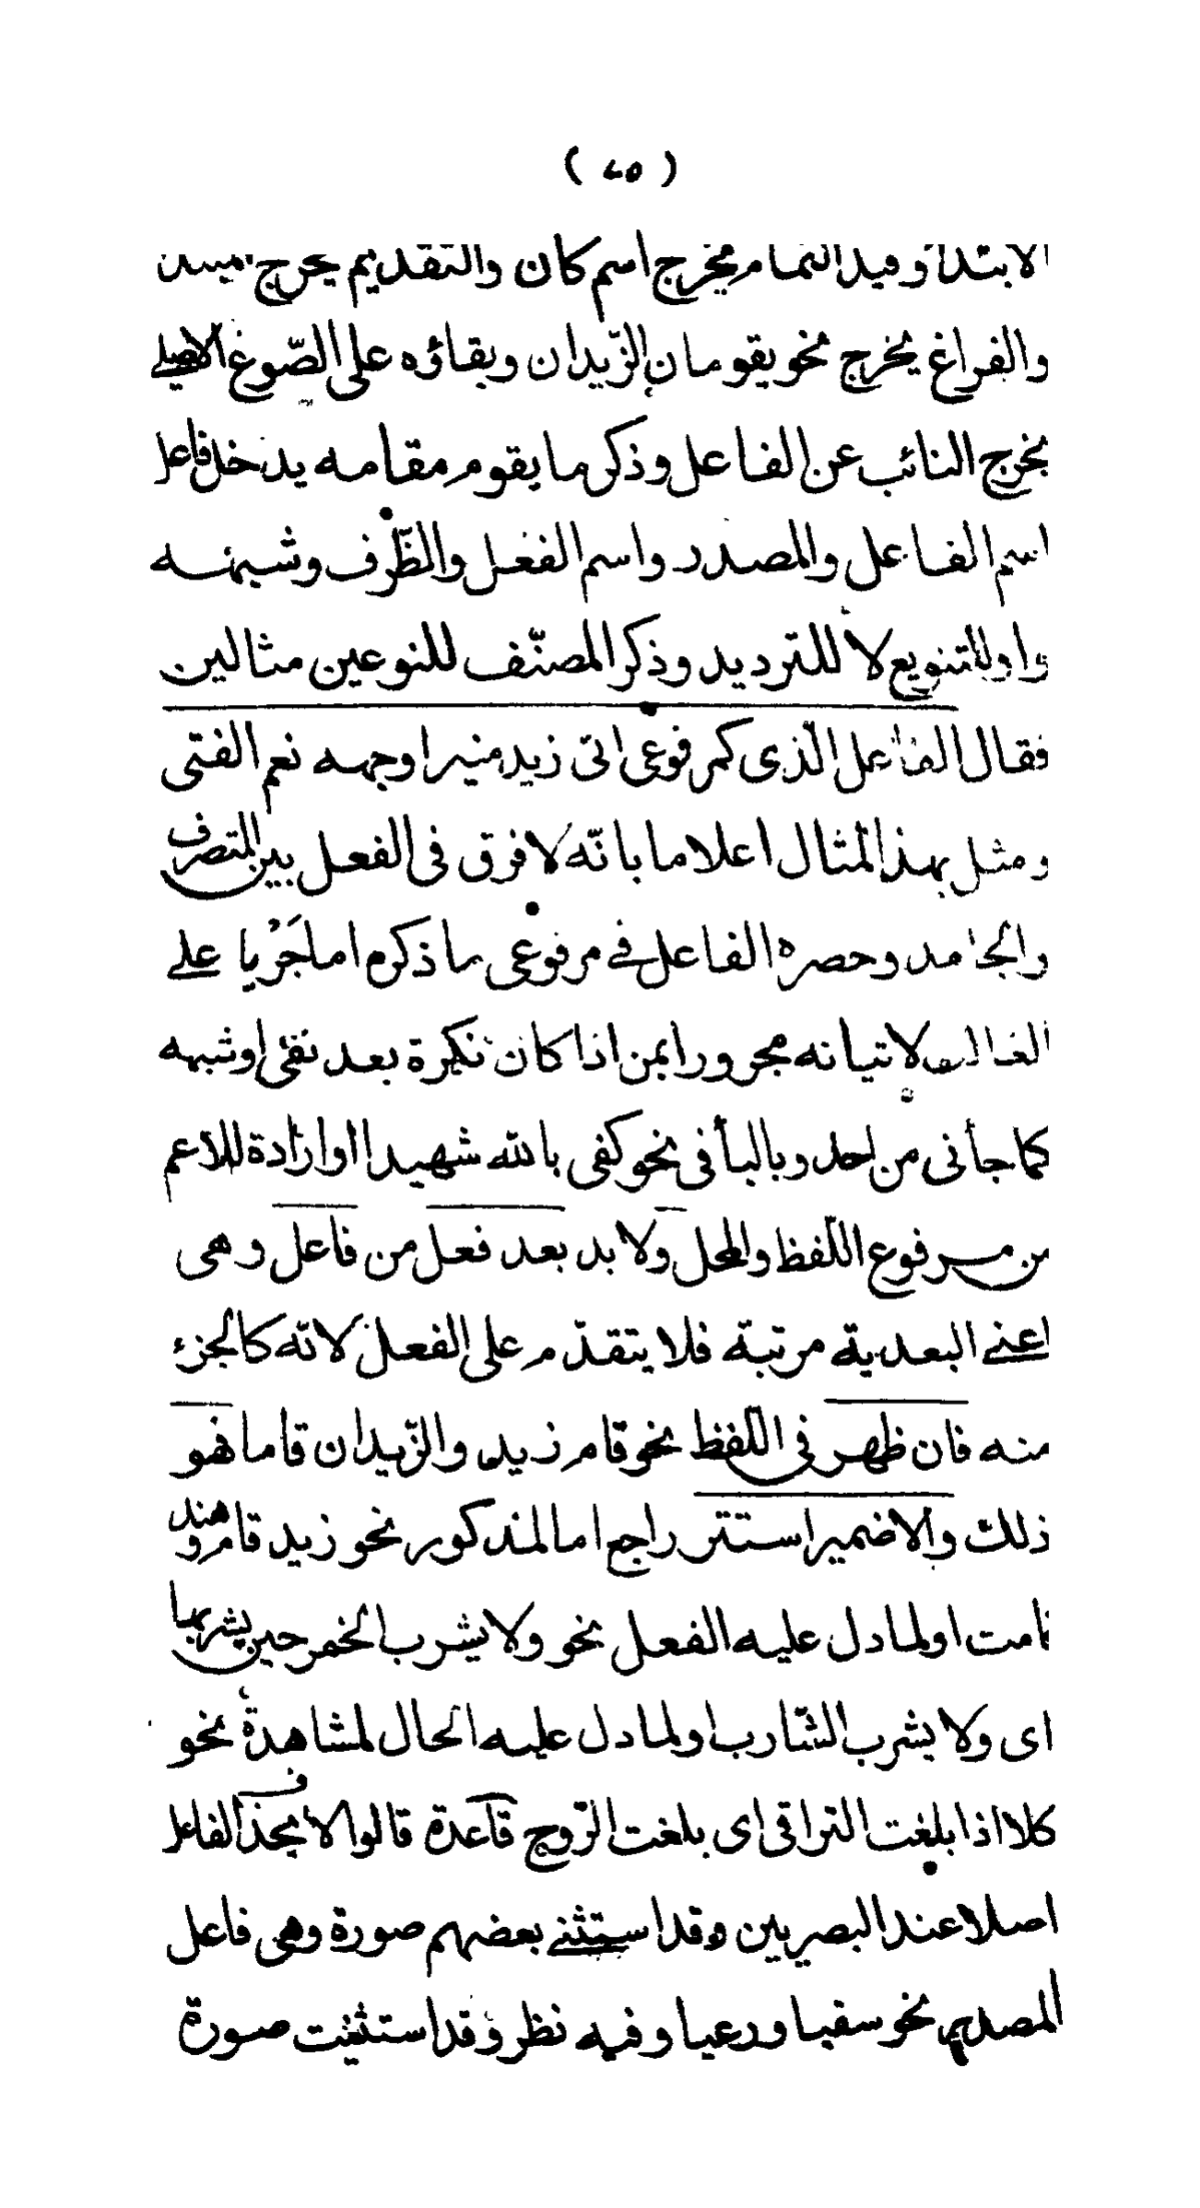 ( ٧٥ )
الابتداء وقيد التمام يخرج اسم كان والتقديم يخرج المبتدأ
والفراغ يخرج نحو يقومان الزّيدان وبقاؤه على الصّوغ الاصلي
يخرج النائب عن الفاعل وذكر ما يقوم مقامه يدخل فاعل
اسم الفاعل والمصدر واسم الفعل والظّرف وشبهه
واو للتنويع لا للترديد وذكر المصنّف للنوعين مثالين
فقال الفاعل الّذى كمرفوعى اتى زيد منيرا وجهه نعم الفتى
ومثل بهذا المثال اعلاما بانّه لا فرق فى الفعل بين المتصرف
والجامد وحصره الفاعل في مرفوعى ما ذكره اما جَرْيا على
الغالب لاتيانه مجرورا بمن اذا كان نكرة بعد نفى اوشبهه
كما جأنى من احد وبالبأ فى نحو كفى بالله شهيدا او ارادة للاعم
من مرفوع اللّفظ والمحل ولا بد بعد فعل من فاعل وهى
اعنى البعدية مرتبة فلا يتقدّم على الفعل لانّه كالجزء
منه فان ظهر فى اللّفظ نحو قام زيد والزّيدان قاما فهو
ذلك والا ضمير استتر راجع اما لمذكور نحو زيد قام وهند
قامت او لما دل عليه الفعل نحو ولا يشرب الخمر حين يشربها
اى ولا يشرب الشّارب او لما دل عليه الحال لمشاهدة نحو
كلا اذا بلغت التراقى اى بلغت الرّوح قاعدة قالوا لا يحذف الفاعل
اصلا عند البصريين وقد استثنى بعضهم صورة وهى فاعل
المصدر نحو سقيا ورعيا وفيه نظر وقد استثنيت صورة